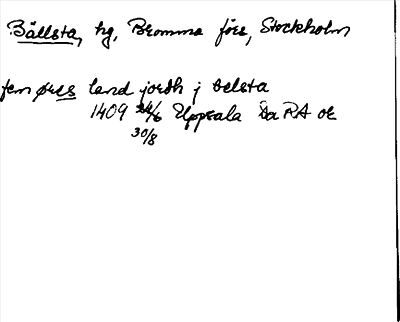 Bällsta, hg, Bromma förs, Stockholm
fem øres land jordh j belsta
1409 Uppsala Da RA or
30/8